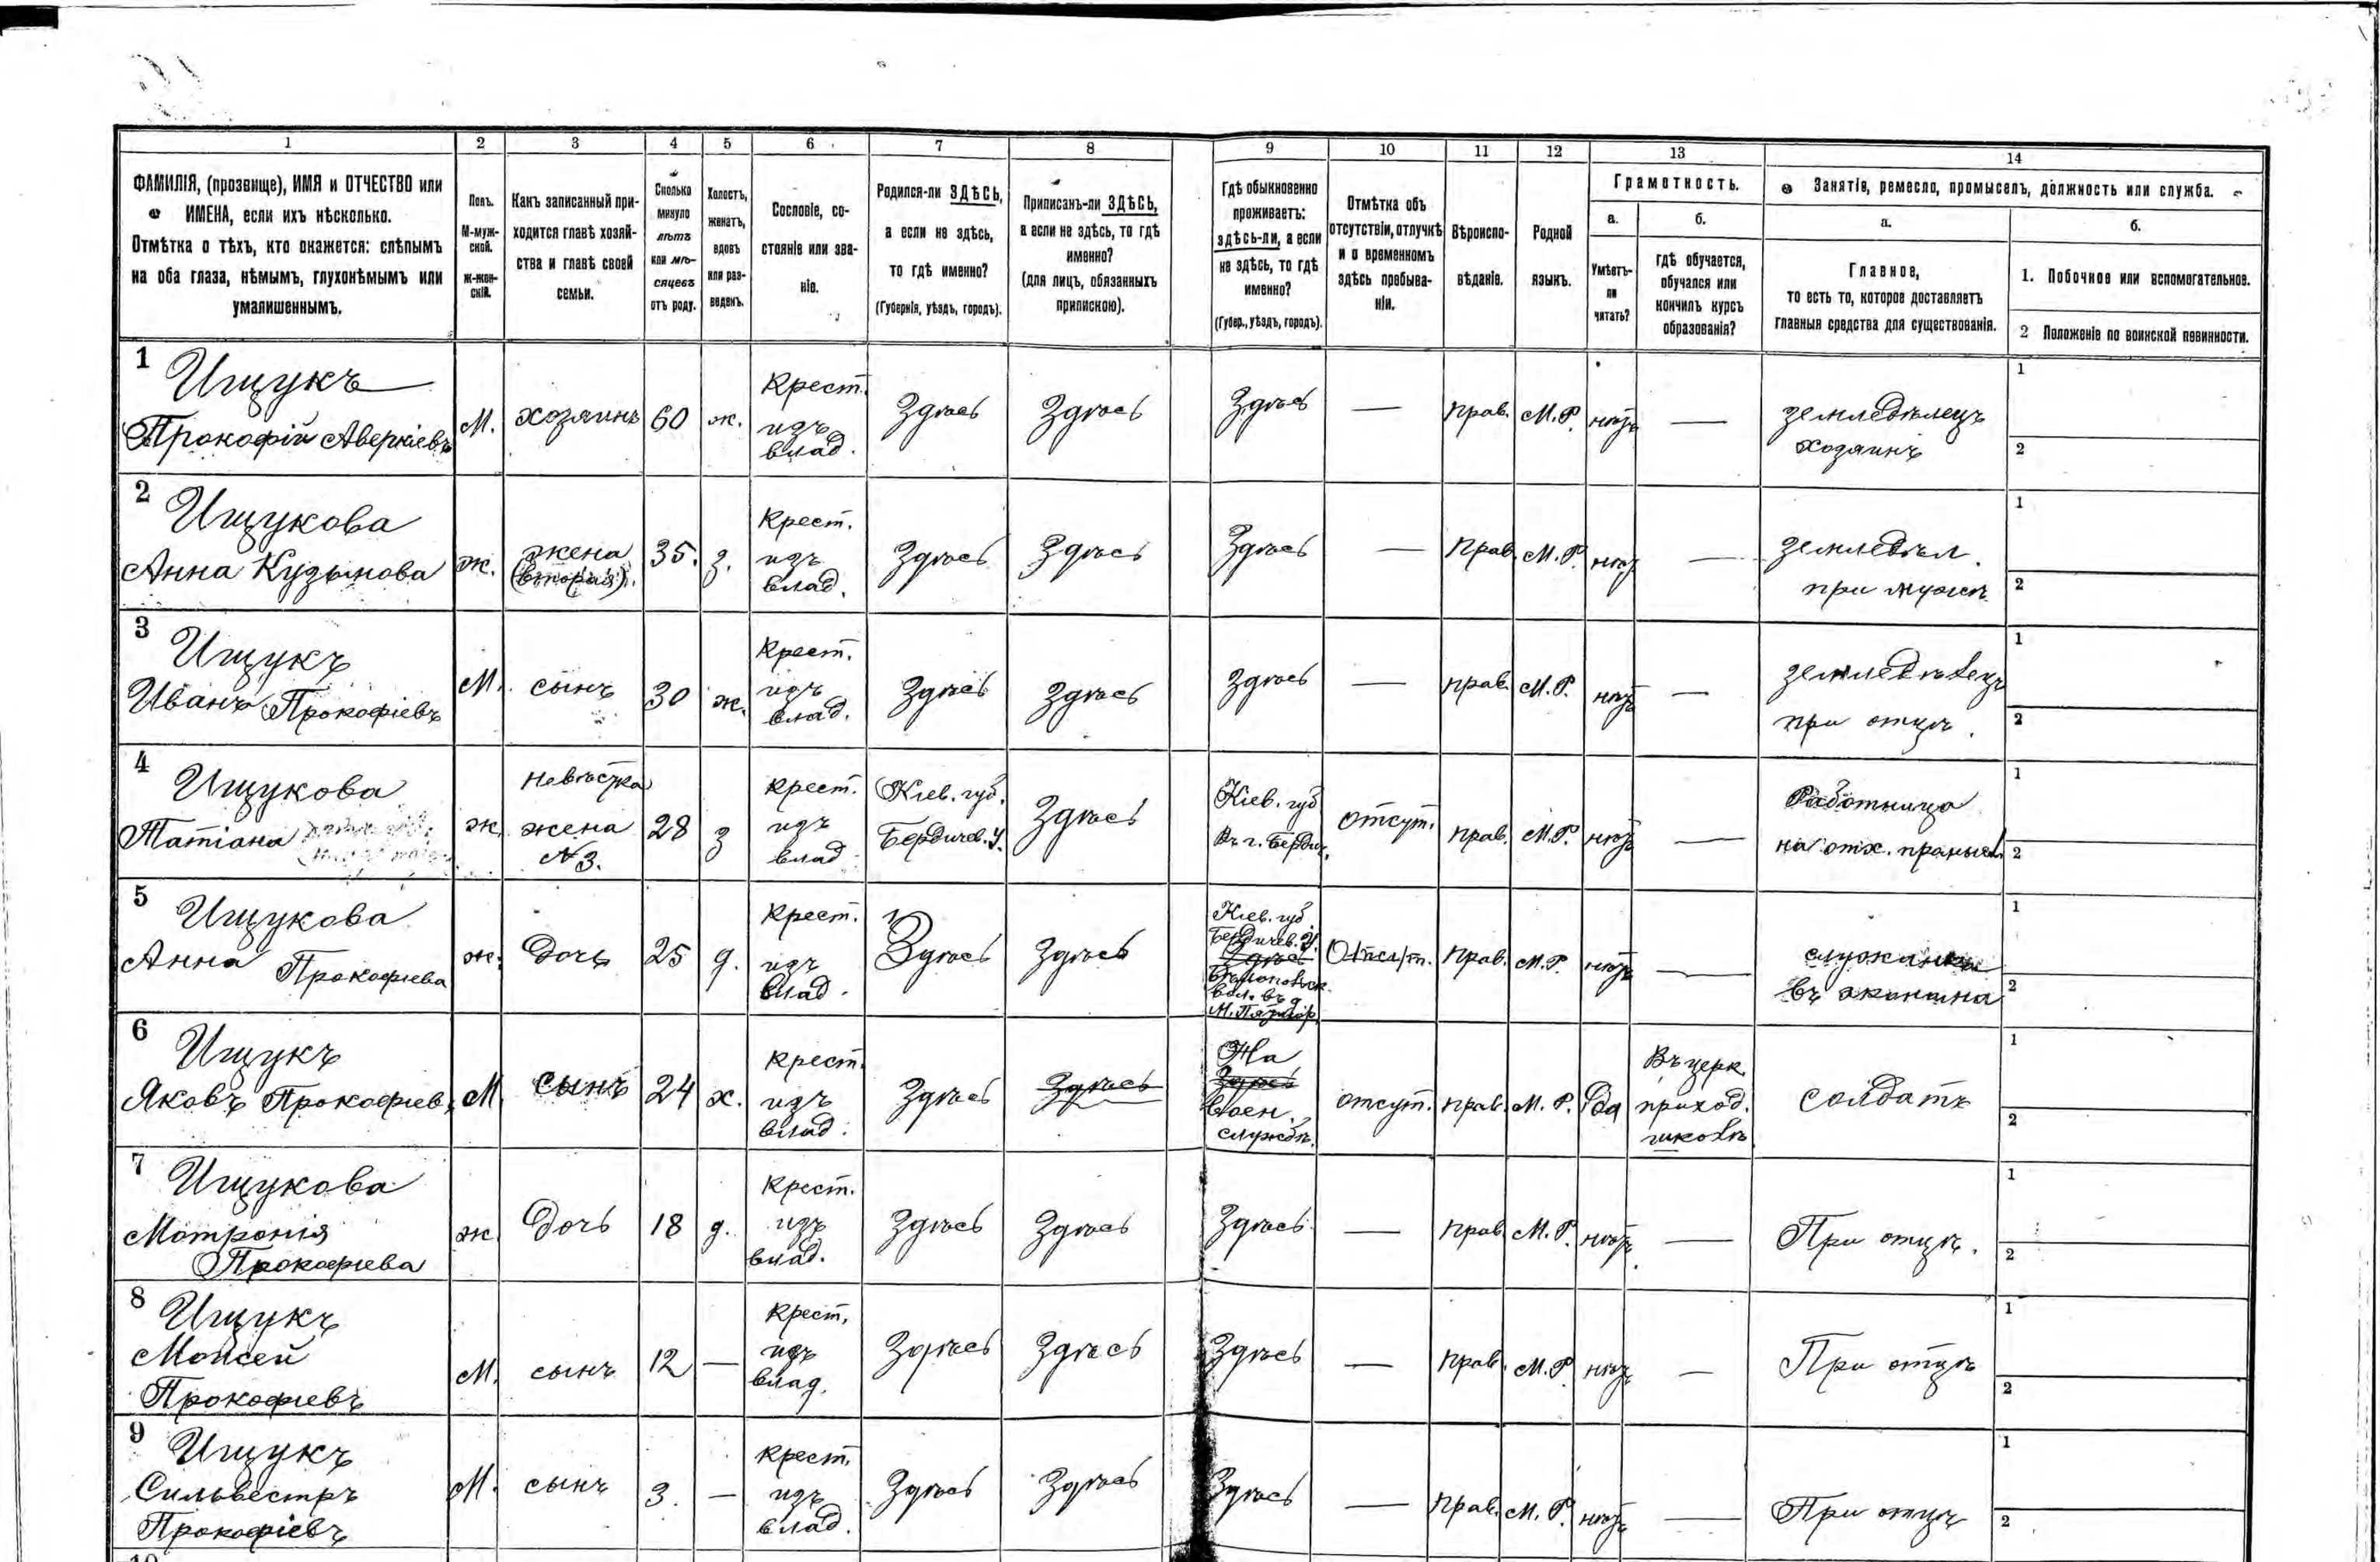 1 2 3 4 5 6 7 8 9 10 11 12 13 14
ФАМИЛІЯ, (прозвище), ИМЯ и ОТЧЕСТВО или
ИМЕНА, если ихъ нѣсколько.
Отмѣтка о тѣхъ, кто окажется: слѣпымъ
на оба глаза, нѣмымъ, глухонѣмымъ или
умалишеннымъ.
Полъ.
М-муж-
ской.
Ж-жен-
скій.
Какъ записанный при-
ходится главѣ хозяй-
ства и главѣ своей
семьи.
Сколько
минуло
лѣтъ
или мѣ-
сяцевъ
отъ роду.
Холостъ,
женатъ,
вдовъ
или раз-
веденъ.
Сословіе, со-
стояніе или зва-
ніе.
Родился-ли ЗДѢСЬ,
а если не здѣсь,
то гдѣ именно?
(Губернія, уѣздъ, городъ).
Приписанъ-ли ЗДѢСЬ,
а если не здѣсь, то гдѣ
именно?
(для лицъ, обязанныхъ
припискою).
Гдѣ обыкновенно
проживаетъ:
здѣсь-ли, а если
не здѣсь, то гдѣ
именно?
(Губер., уѣздъ, городъ).
Отмѣтка объ
отсутствіи, отлучкѣ
и о временномъ
здѣсь пребыва-
ніи.
Вѣроиспо-
вѣданіе.
Родной
языкъ.
Грамотность.
а.
Умѣетъ-
ли
читать?
б.
гдѣ обучается,
обучался или
кончилъ курсъ
образованія?
Занятіе, ремесло, промыселъ, должность или служба.
а.
Главное,
то есть то, которое доставляетъ
главныя средства для существованія.
б.
1. Побочное или вспомогательное.
2 Положеніе по воинской повинности.
1
Ищукъ
Прокофій Аверкіевъ
М.
хозяинъ
60
ж.
Крест.
изъ
влад.
Здѣсь
Здѣсь
Здѣсь
—
прав.
М.Р.
нѣтъ
—
земледѣлецъ
хозяинъ
1
2
2
Ищукова
Анна Кузьмова
ж.
жена
(вторая).
35.
з.
Крест.
изъ
влад.
Здѣсь
Здѣсь
Здѣсь
—
Прав.
М.Р.
нѣтъ
—
земледѣл.
при мужѣ
1
2
3
Ищукъ
Иванъ Прокофіевъ
М.
сынъ
30
ж.
Крест.
изъ
влад.
Здѣсь
Здѣсь
Здѣсь
—
прав.
М.Р.
нѣтъ
—
земледѣлецъ
при отцѣ.
1
2
4
Ищукова
Татіана
ж.
невѣстка
жена
№3.
28
з
крест.
изъ
влад.
Кіев. губ.
Бердичев. у.
Здѣсь
Кіев. губ
въ г. Бердич.
отсут.
прав.
М.Р.
нѣтъ
—
Работница
на отх. промысл.
1
2
5
Ищукова
Анна Прокофіева
ж.
дочь
25
д.
Крест.
изъ
влад.
Здѣсь
Здѣсь
Кіев. губ
Бердичев. У.
Здѣсь
вол. въ
Отсут.
прав.
М.Р.
нѣтъ
—
служанка
въ экономіи
1
2
6
Ищукъ
Яковъ Прокофіев.
М
сынъ
24
х.
Крест.
изъ
влад.
Здѣсь
Здѣсь
На
Здѣсь
воен.
службѣ.
отсут.
прав.
М.Р.
Да
Въ церк.
приход.
школѣ
солдатъ
1
2
7
Ищукова
Матронія
Прокофіева
ж.
дочь
18
д.
Крест.
изъ
влад.
Здѣсь
Здѣсь
Здѣсь
—
прав.
М.Р.
нѣтъ.
—
При отцѣ.
1
2
8
Ищукъ
Моисей
Прокофіевъ
М.
сынъ
12
—
Крест.
изъ
влад.
Здѣсь
Здѣсь
Здѣсь
—
прав.
М.Р.
нѣтъ
—
При отцѣ
1
2
9
Ищукъ
Сильвестръ
Прокофіевъ
М.
сынъ
3.
—
Крест.
изъ
влад.
Здѣсь
Здѣсь
Здѣсь
—
прав.
М.Р.
нѣтъ
—
При отцѣ
1
2
10